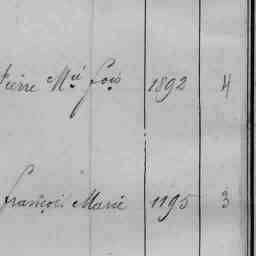 Pierre Mie fois 1892 4
françois Marie 1195 3